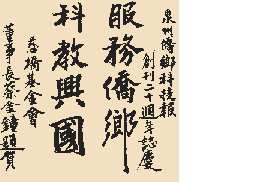 泉州僑鄉科技報
創刊二十週年誌慶
服務僑鄉
科教興國
慈橋基金會
董事長蔡金鐘題賀